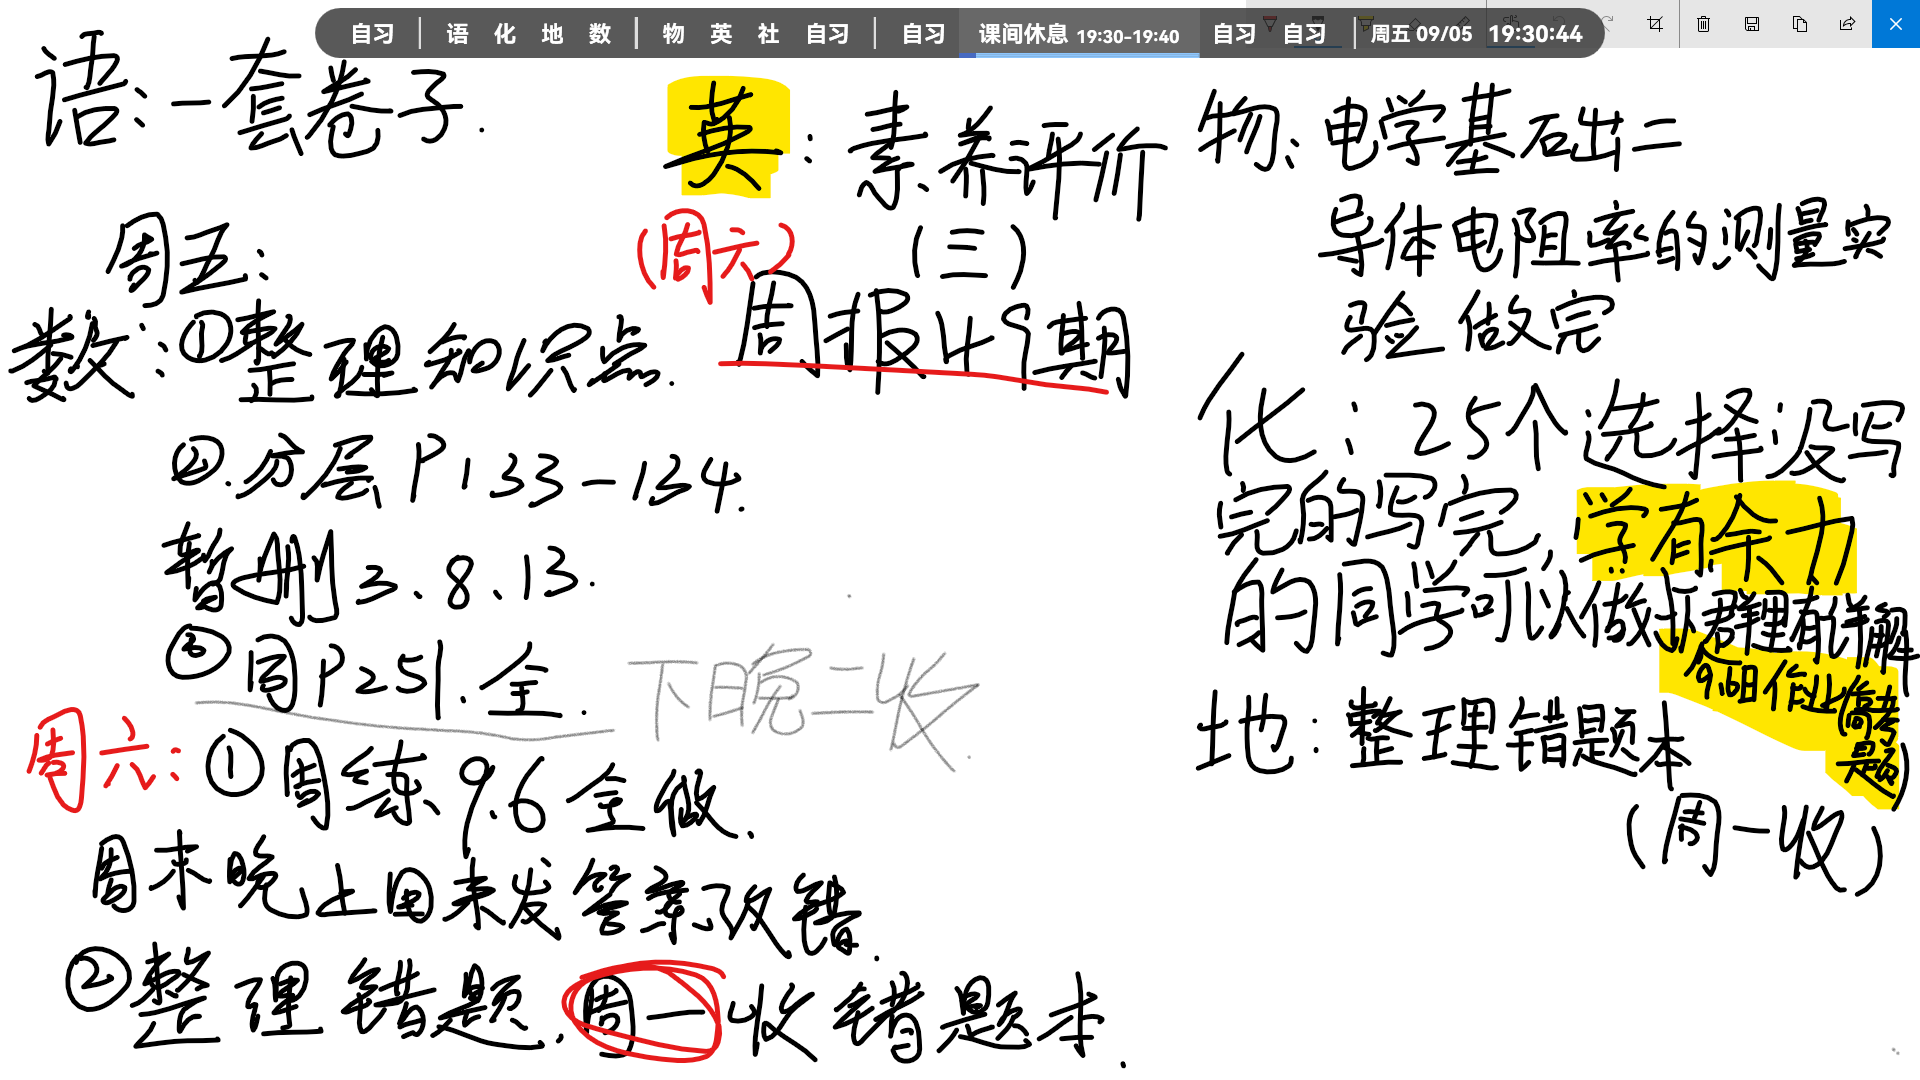 自习 | 语 化 地 数 | 物 英 社 自习 | 自习 课间休息 19:30-19:40 自习 自习 | 周五 09/05 19:30:44
语:一套卷子.
周五:
数:①整理知识点.
②.分层P133-134.
暂删3、8、13.
③同P251.全.
下晚二收.
周六:①周练9.6全做.
周末晚上回来发答案改错.
②整理错题.周一收错题本.
英:素养评价
(三)
(周六)
周报49期
物:电学基础二
导体电阻率的测量实
验做完
化:25个选择没写
完的写完,学有余力
的同学可以做
群里有详解
9.6日作业(高考
题)
地:整理错题本
(周一收)